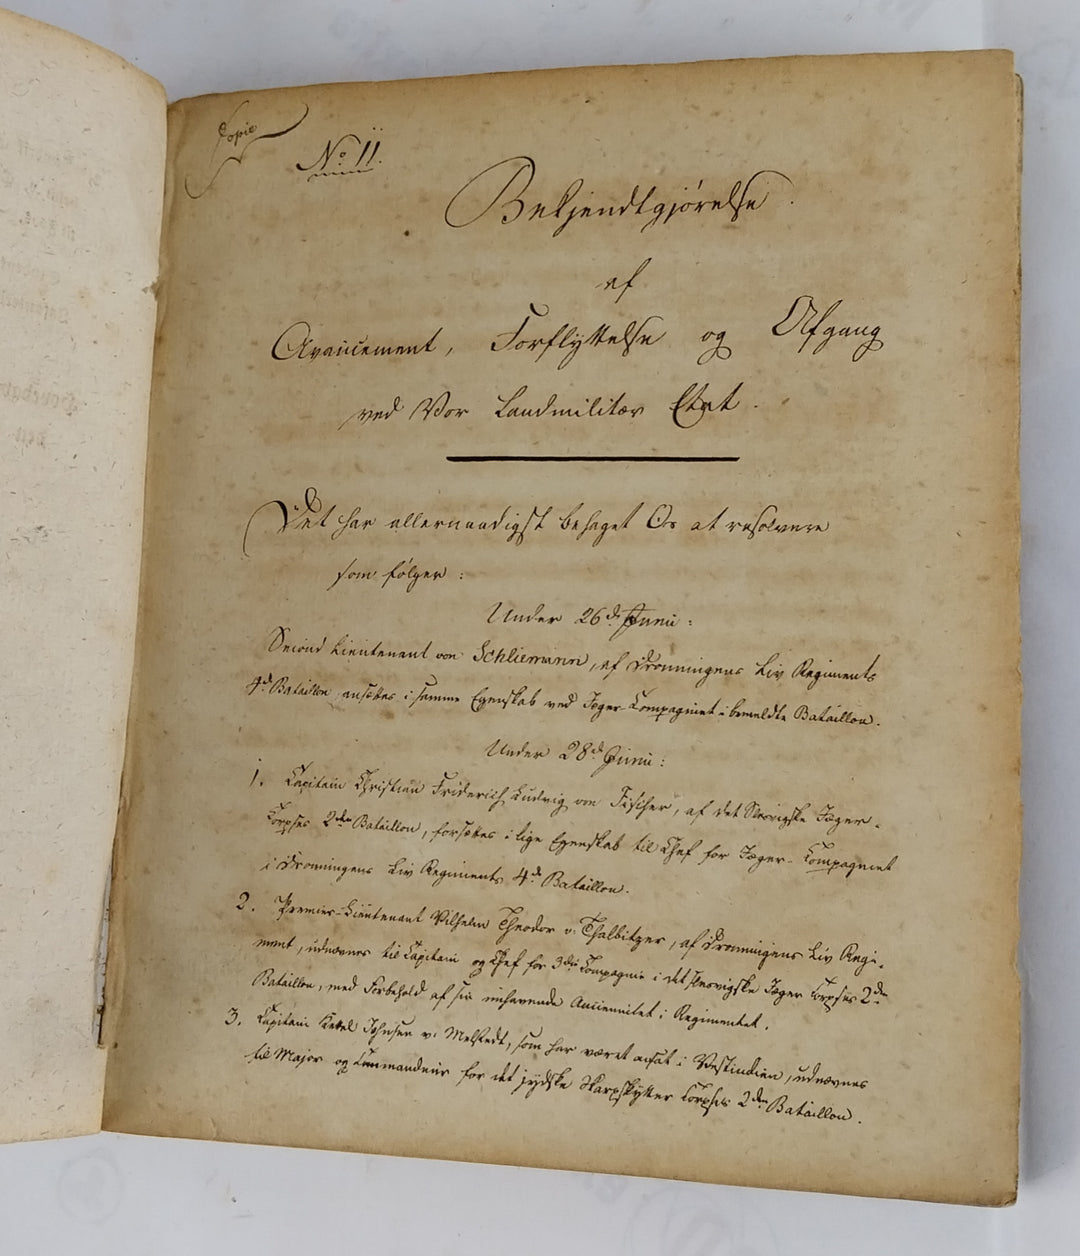 Copie
No 11.
Bekjendtgjørelse.
af
Avancement, Forflyttelse og Afgang
ved Vor Landmilitær Etat.
Det har allernaadigst behaget Os at resolvere
som følger:
Under 26de Junii:
Second Lieutenant von Schliemann, af Dronningens Liv Regiments
4de Bataillon, ansættes i samme Egenskab ved Jæger-Compagniet i bemeldte Bataillon.
Under 28de Junii:
1. Capitain Christian Friderich Ludvig von Fischer, af det Slesvigske Jæger-
Corpses 2den Bataillon, forsættes i lige Egenskab til Chef for Jæger-Compagniet
i Dronningens Liv Regiments 4de Bataillon.
2. Premier-Lieutenant Vilhelm Theodor v. Thalbitzer, af Dronningens Liv Regi-
ment, udnævnes til Capitain og Chef for 3die Compagnie i det slesvigske Jæger Corpses 2den
Bataillon, med Forbehold af sin nuhavende Anciennitet i Regimentet.
3. Capitain Ketel Johnsen v. Melstedt, som har været ansat i Vestindien, udnævnes
til Major og Commandeur for det jydske Skarpskytter Corpses 2den Bataillon.